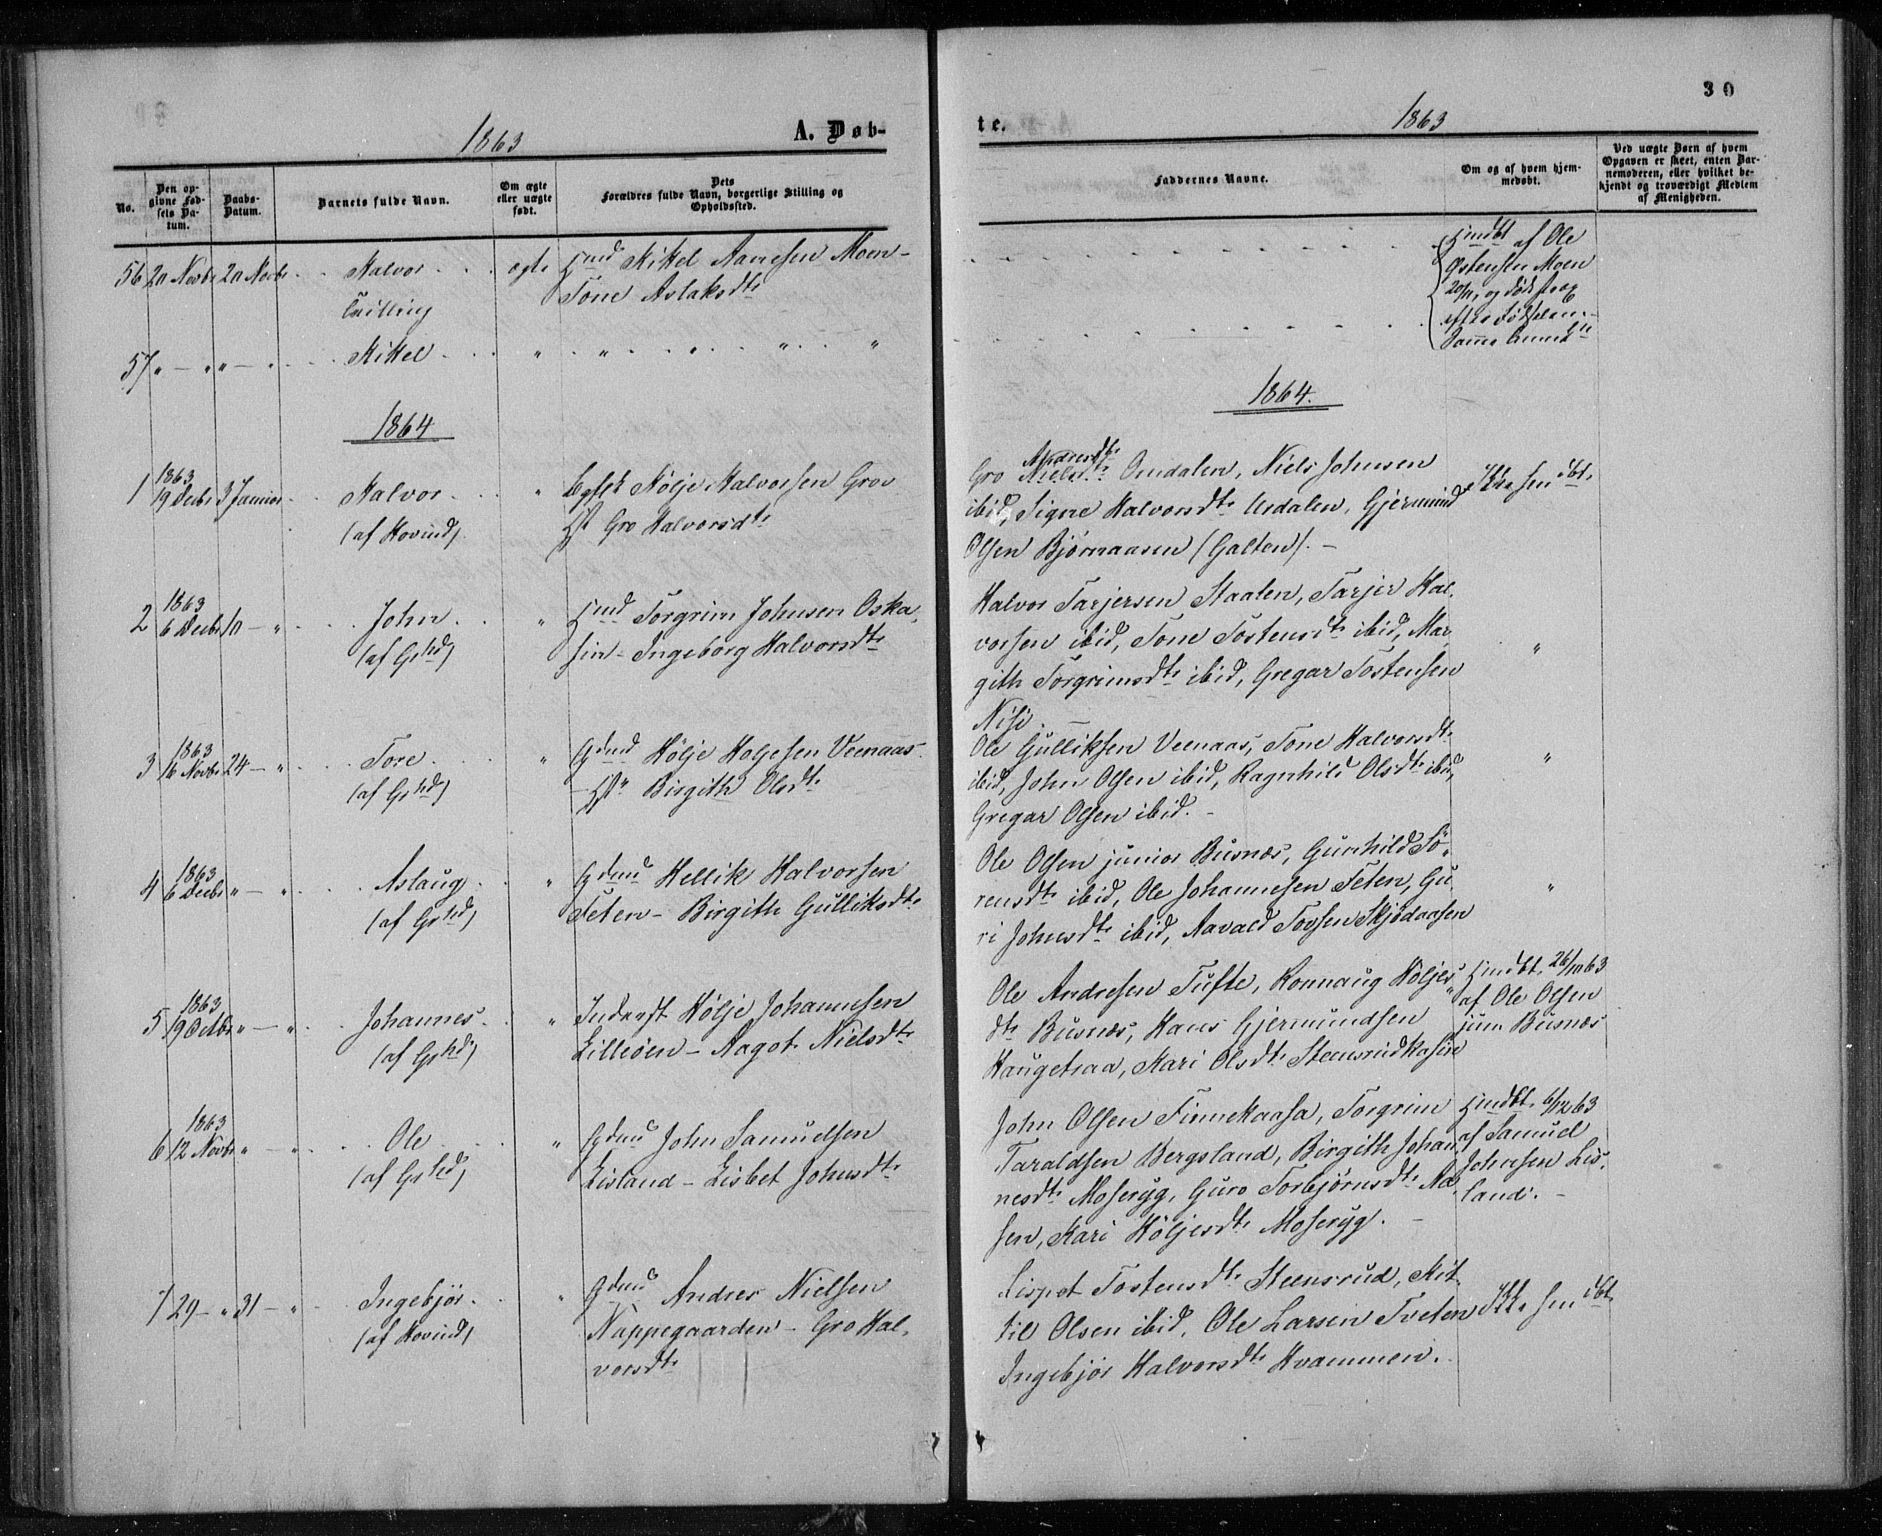 30
1863
A. Døb-
te.
1863
No.
Den op-
givne Fød-
sels Da-
tum.
Daabs-
Datum.
Barnets fulde Navn.
Om ægte
eller uægte
født.
Dets
Forældres fulde Navn, borgerlige Stilling og
Opholdssted.
Faddernes Navne.
Om og af hvem hjem-
medøbt.
Ved uægte Børn af hvem
Opgaven er skeet, enten Bar-
nemoderen, eller hvilket be-
kjendt og troværdigt Medlem
af Menigheden.
56 20 Novbr 20 Novbr Halvor ægte Hmd Kikel Aanesen Moen -
Tvilling Tone Aslaksdtr
Hmdbt af Ole
Østensen Moen
20/11 og døde strax
efter Fødselen.
57 " - " " - " Kikel " " " " "
Samme Anmdt
1864
1864.
1 1863
19 Decbr 3 Januar Halvor " Hølje Halvorsen Grov
(af Hovind) Hst Gro Halvorsdtr
Andersdtr
Gro Nielsdtr Omdalen, Niels Johnsen
ibid, Signe Halvorsdtr Urdalen, Gjermund
Olsen Bjørnaasen (Galten). -
Ikke hmdbt.
2 1863
6 Decbr 10 - " John " Hmd Torgrim Johnsen Oska-
(af Grhd) sin - Ingeborg Halvorsdtr
Halvor Tarjersen Staalen, Tarjer Hal-
vorsen ibid, Tone Tostensdtr ibid, Mar-
gith Torgrimsdtr ibid, Gregar Tostensen
Nisi.
"
3 1863
16 Novbr 24 - " Tore " Gdmd Hølje Holjesen Veenaas
(af Grhd) - Hstr Birgith Olsdtr
Ole Gulliksen Veenaas, Tone Halvorsdtr
ibid, John Olsen ibid, Ragnhild Olsdtr ibid,
Gregar Olsen ibid. -
"
4 1863
6 Decbr " - " Aslaug " Gdmd Hellik Halvorsen
(af Grhd) Teten - Birgith Gulliksdtr
Ole Olsen junior Busnæs, Gunhild Sö-
rensdtr ibid, Ole Johannesen Teten, Gu-
ri Johnsdtr ibid, Aavald Tovsen Skjødaasen
"
5 1863
19 Octbr " - " Johannes " Inderst Hølje Johannesen
(af Grhd) Lilleøen - Aagot Nielsdtr
Ole Andresen Tufte, Ronnaug Höljes-
dtr Busnæs, Hans Gjermundsen
Haugetraa, Kari Olsdtr Steensrudkasin
Hmdbt 26/10 63
af Ole Olsen
jun Busnæs
6 1863
12 Novbr " - " Ole " Gdmd John Samuelsen
(af Grhd) Lisland - Lisbet Johnsdtr
John Olsen Finnekaasa, Torgrim
Taraldsen Bergsland, Birgith Johan-
nesdtr Moseryg, Guro Torbjørnsdtr Aa-
sen, Kari Höljesdtr Moseryg. -
Hmdbt 6/12 63
af Samuel
Johnsen Lis-
land. -
7 29 - " 31 - " Ingebjør " Gdmd Andres Nielsen
(af Hovind) Nappegaarden - Gro Hal-
vorsdtr
Lispet Tostensdtr Steensrud, Kit-
til Olsen ibid, Ole Larsen Tveten
Ingebjør Halvorsdtr Kvammen.
Ikke hmdbt